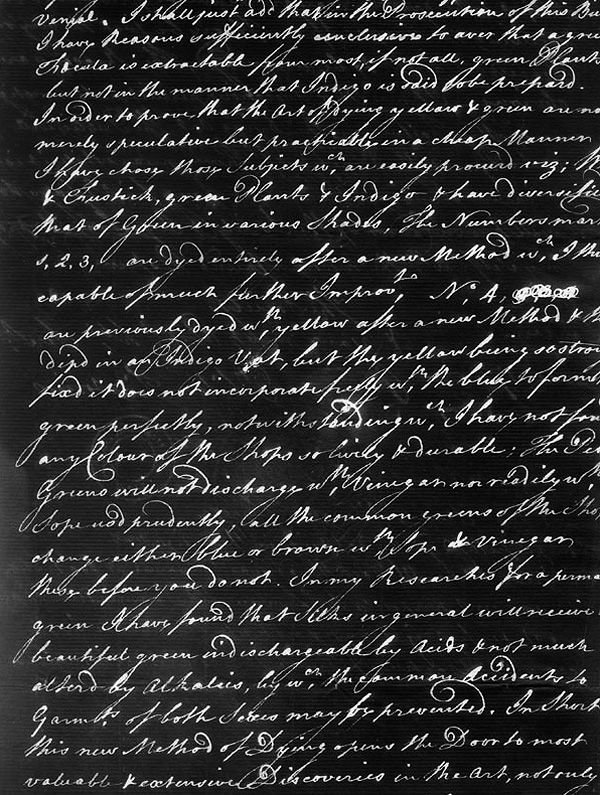 Venial. I shall just add that in the Prosecution of this Bu
I have Reasons sufficiently conclusive to aver that a gree
Fæcula is extractable from most, if not all, green Plants
but not in the manner that Indigo is said to be prepard.
In order to prove that the Art of Dying yellow & green are no
merely speculative but practicable, in a cheap Manner
I have chose those Subjects wch, are easily procurd viz;
& Fustick, green Plants & Indigo & have diversified
that of Green in various Shades, The Numbers mark
1, 2, 3, are dyed entirely after a new Method wch, I thi
capable of much further Improvt, No. 4,
are previously dyed wth, yellow after a new Method & th
dipd in an Indigo Vat, but the yellow being so stron
fixd it does not incorporate freely wth, the blue to form
green perfectly, notwithstanding wch, I have not fou
any Colour of the Shops so lively & durable; The
Greens will not discharge wth, Vinegar nor readily wth
Sope usd prudently, all the common greens of the Sho
change either blue or brown wth, Sope & Vinegar
these before you do not. In my Researches for a perma
green I have found that Silks in general will receive
beautiful green indischargeable by Acids & not much
alterd by Alkalies, by wch, the common Accidents to
Garmts. of both Sexes may be prevented. In Short
this new Method of Dying opens the Door to most
valuable & extensive Discoveries in the Art, not only